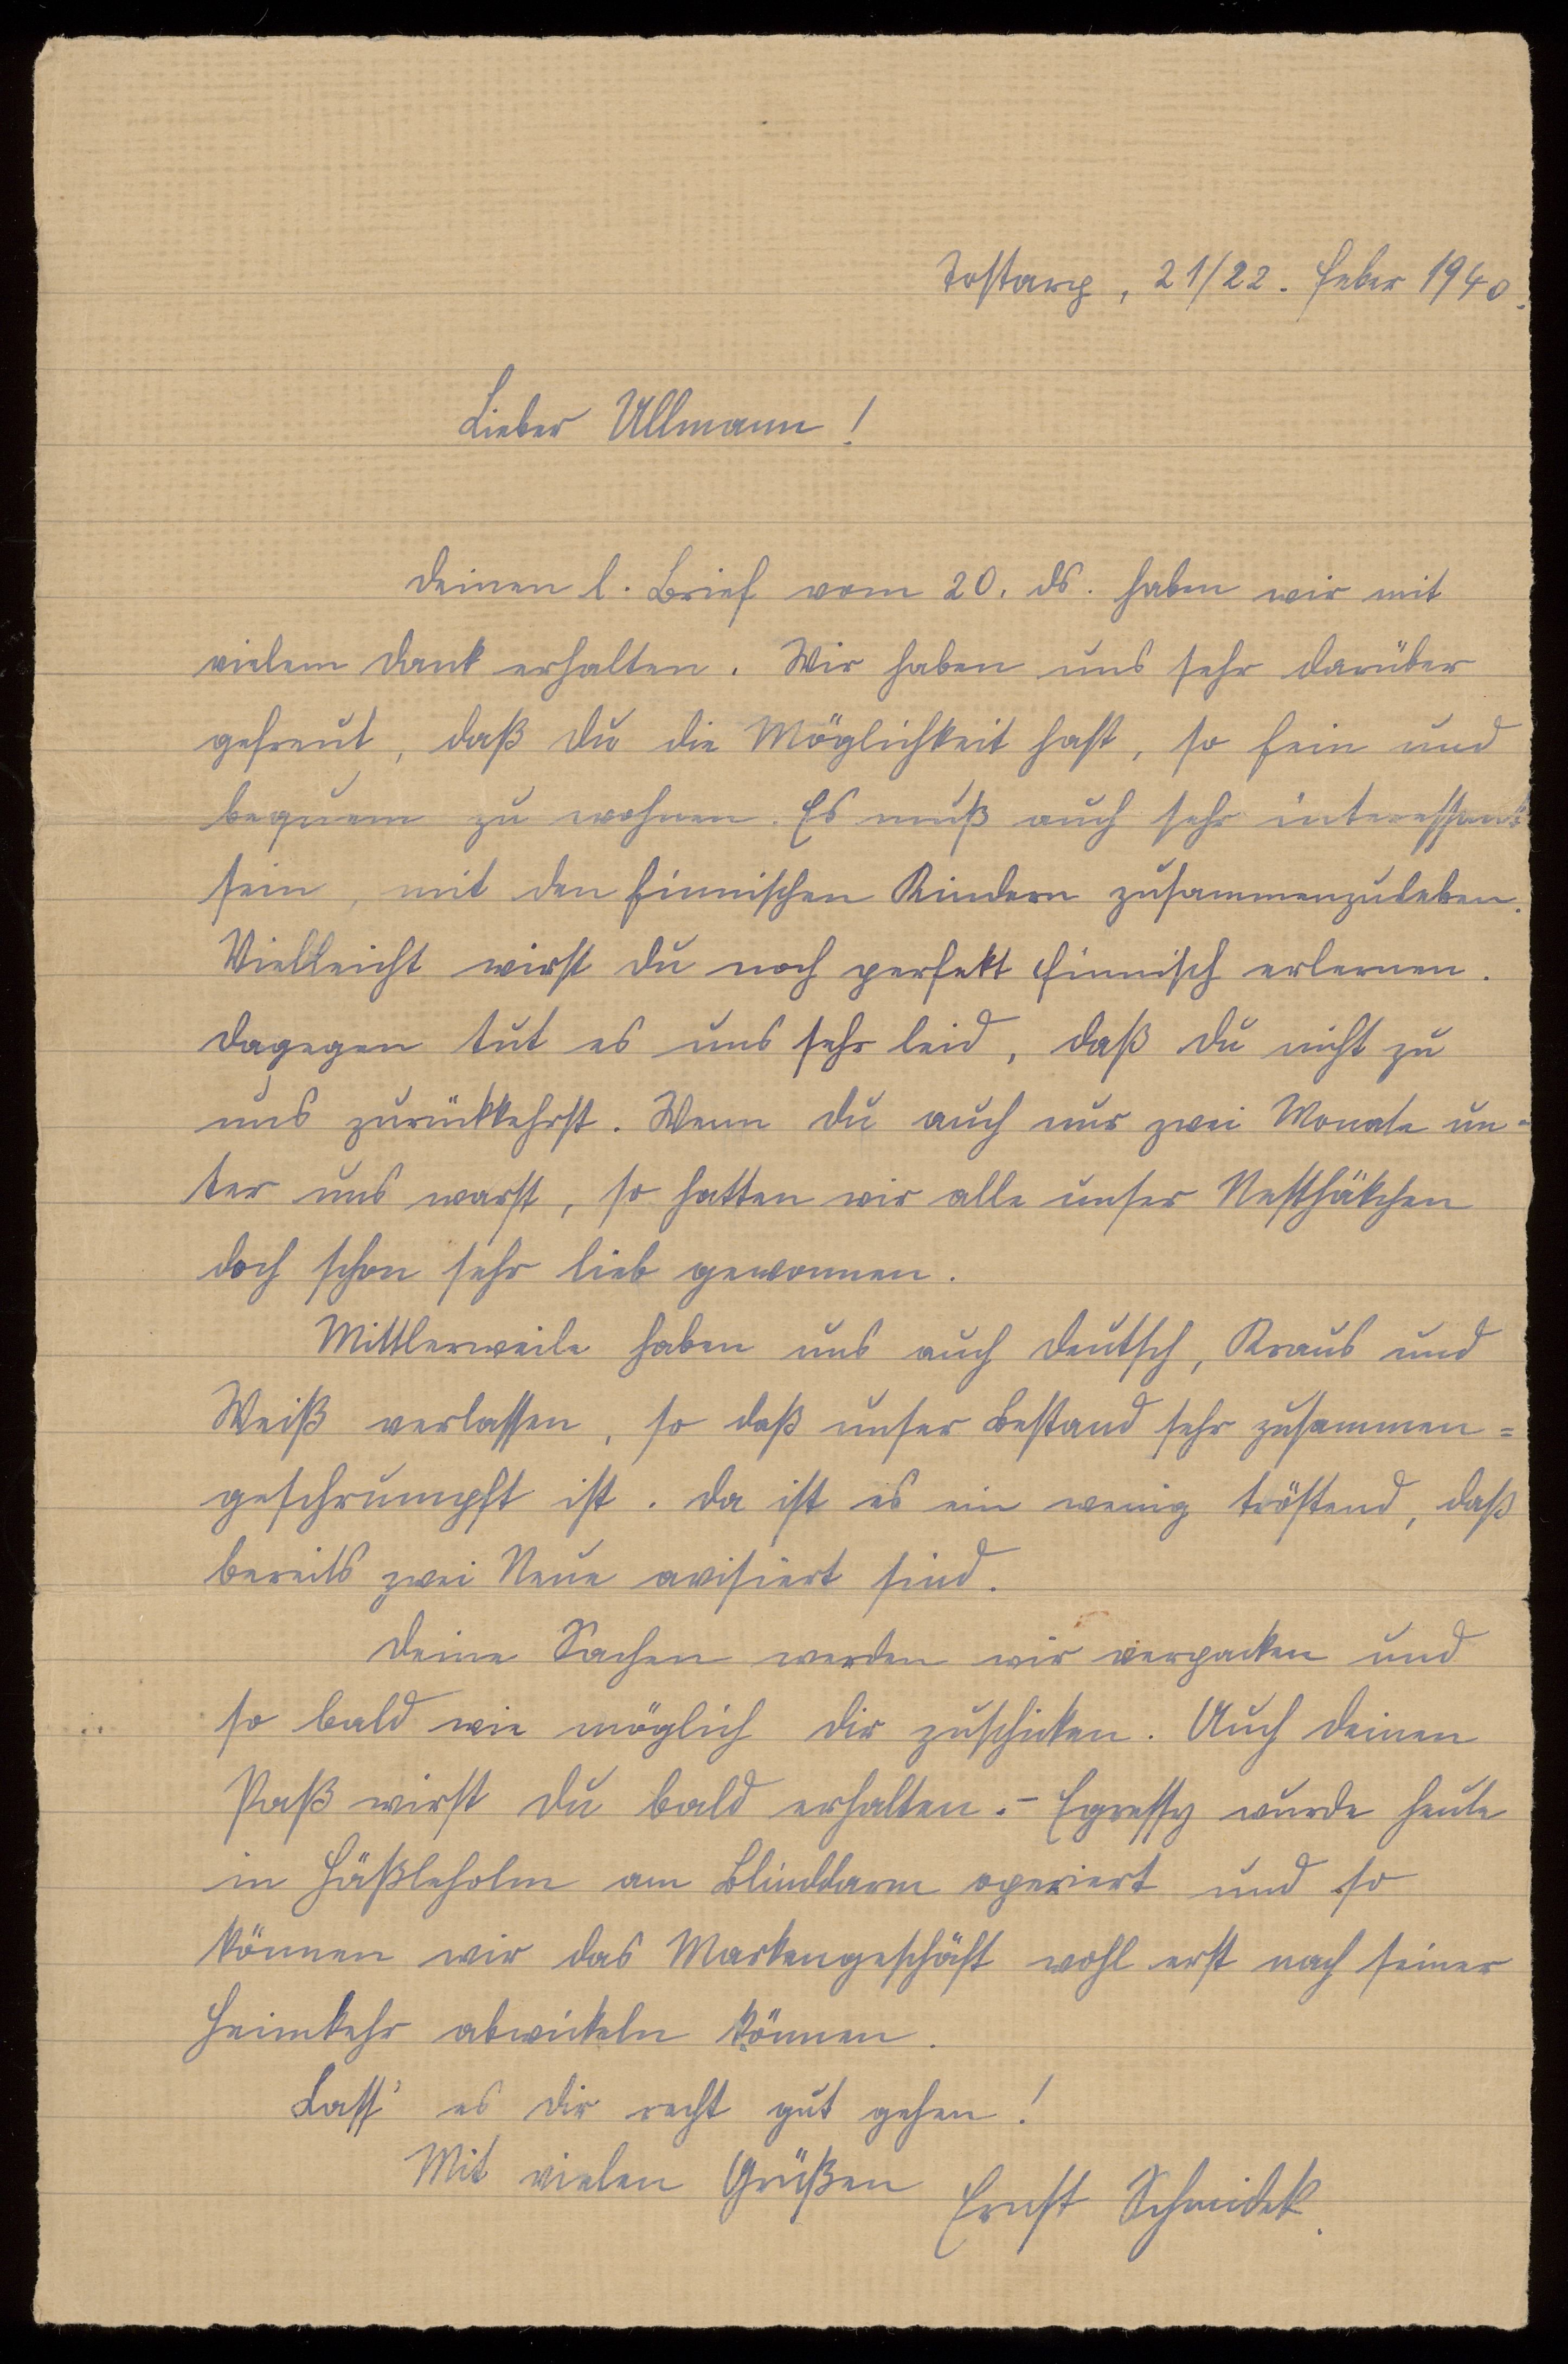 Tostarp, 21/22. Feber 1940.
Lieber Ullmann!
Deinen l. Brief vom 20. ds. haben wir mit
vielem Dank erhalten. Wir haben uns sehr darüber
gefreut, daß Du die Möglichkeit hast, so fein und
bequem zu wohnen. Es muß auch sehr interessant
sein, mit den finnischen Kindern zusammenzuleben.
Vielleicht wirst Du noch perfekt finnisch erlernen.
Dagegen tut es uns sehr leid, daß Du nicht zu
uns zurückkehrst. Wenn Du auch nur zwei Monate un-
ter uns warst, so hatten wir alle unser Nesthäkchen
doch schon sehr lieb gewonnen.
Mittlerweile haben uns auch Deutsch, Kraus und
Weiß verlassen, so daß unser Bestand sehr zusammen=
geschrumpft ist. Da ist es ein wenig tröstend, daß
bereits zwei Neue avisiert sind.
Deine Sachen werden wir verpacken und
so bald wie möglich Dir zuschicken. Auch Deinen
Paß wirst Du bald erhalten.- Egressy wurde heute
in Häßleholm am Blinddarm operiert und so
können wir das Markengeschäft wohl erst nach seiner
Heimkehr abwickeln können.
Lass' es Dir recht gut gehen!
Mit vielen Grüßen Ernst Schmidek.